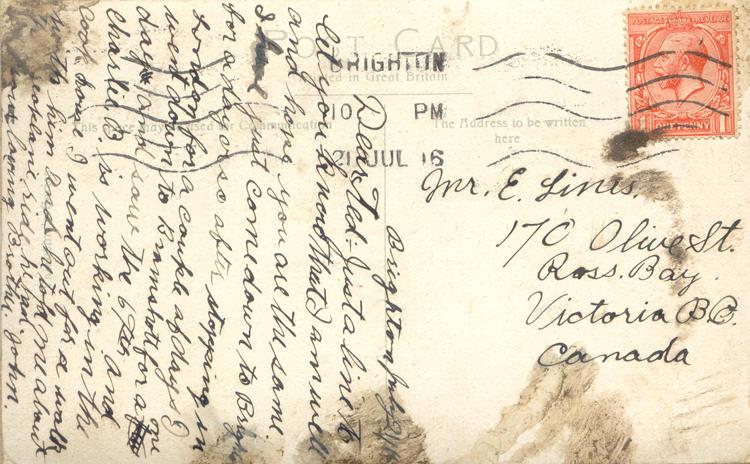 POST CARD
Printed in Great Britain
This space may be used for Communication
The Address to be written
here
POSTAGE REVENUE
BRIGHTON
10 PM
21 JUL 16
Mr. E. Lines.
170 Olive St.
Ross. Bay.
Victoria B.C.
Canada
Brighton July 21/16
Dear Ted:- Just a line to
let you know that I am well
and hope you are the same
I have just come down to
for a day or so after stopping in
London for a couple of days I
went down to Bramshott for a
day and saw the 67th and
Charlie B. is working in the
I went out for a walk
with him and he took me about
Your loving Brother, John.